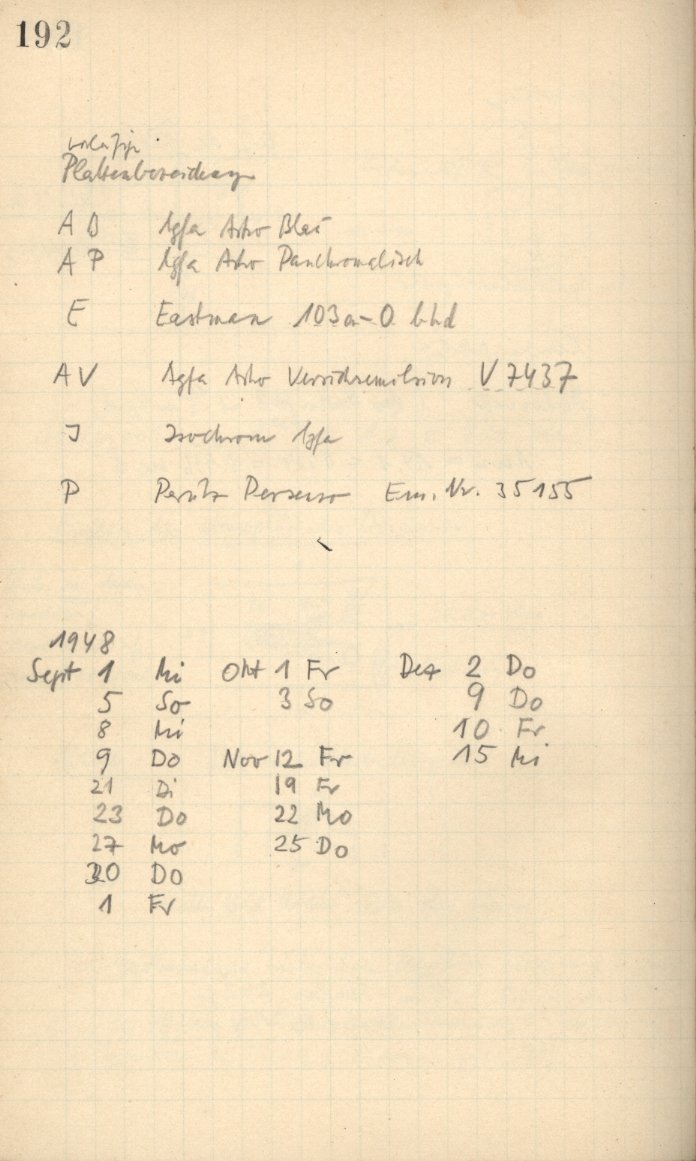 192
vorläufige
Plattenbezeichnung
A B Agfa Astro Blau
A P Agfa Astro Panchromatisch
E Eastman 103a-O
A V Agfa Astro Versuchsemulsion V 7437
J Isochrom Agfa
P Perutz Persenso Em. Nr. 35155
1948
Sept 1 Mi Okt 1 Fr Dez 2 Do
5 So 3 So 9 Do
8 Mi 10 Fr
9 Do Nov 12 Fr 15 Mi
21 Di 19 Fr
23 Do 22 Mo
27 Mo 25 Do
30 Do
1 Fr